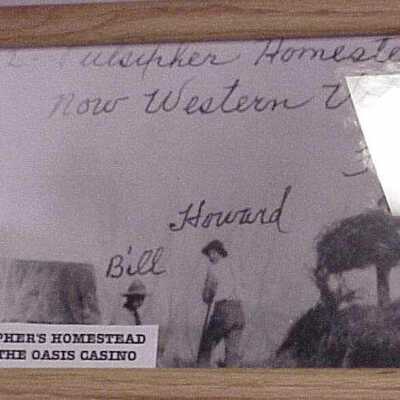 Pulsipher Homeste
Now Western V
Howard
Bill
PHER'S HOMESTEAD
THE OASIS CASINO